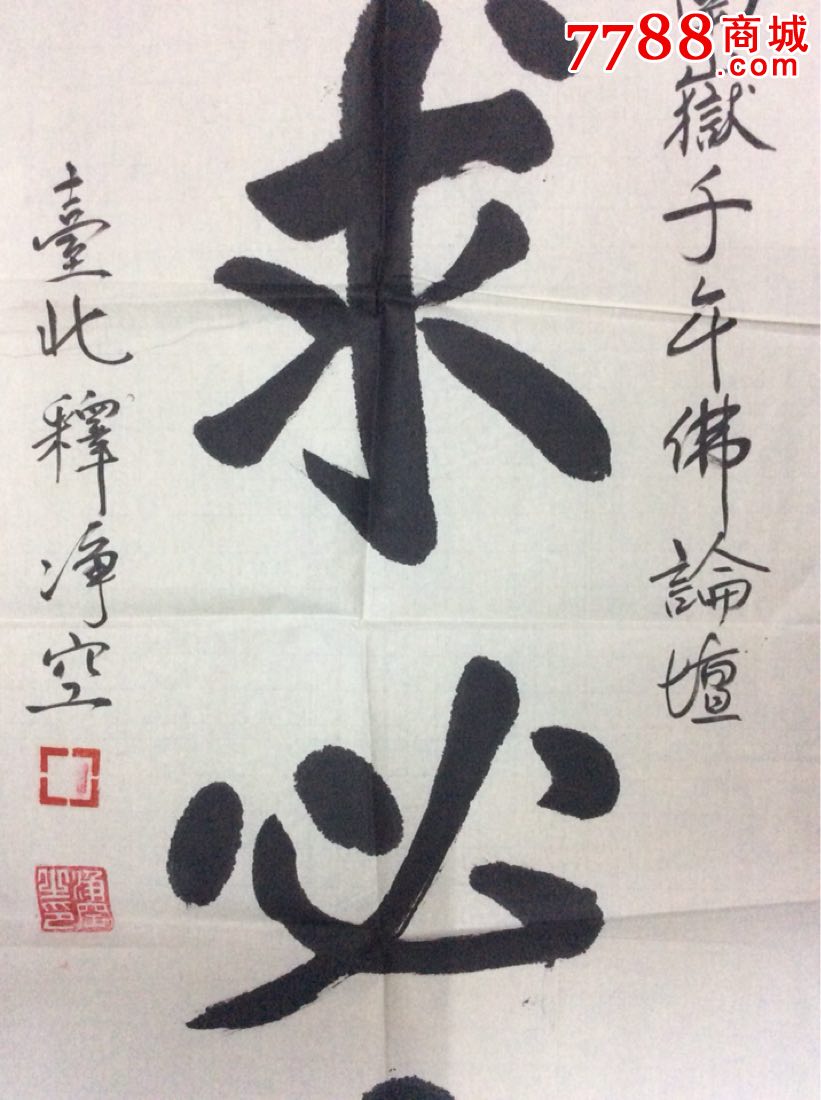 7788商城
.com
嶽千年佛論壇
求必
臺北釋淨空